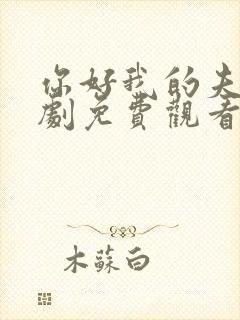 你好我的夫
劇免費觀看
木蘇白